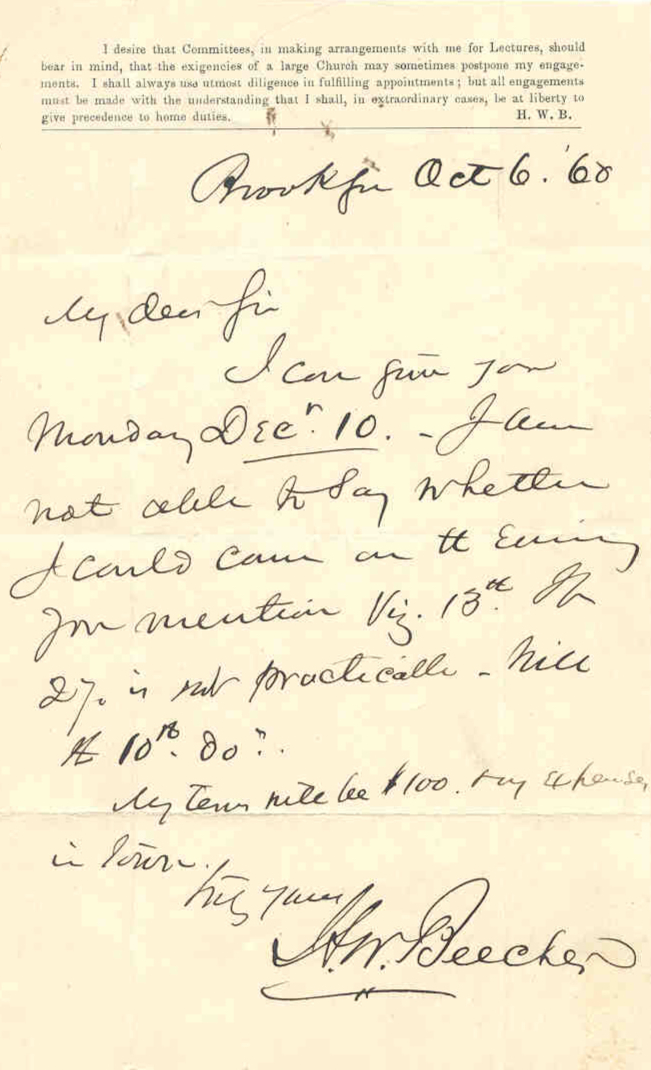 I desire that Committees, in making arrangements with me for Lectures, should
bear in mind, that the exigencies of a large Church may sometimes postpone my engage-
ments. I shall always use utmost diligence in fulfilling appointments; but all engagements
must be made with the understanding that I shall, in extraordinary cases, be at liberty to
give precedence to home duties. H. W. B.
Brooklyn Oct 6. '60
My dear Sir
I can give you
Monday Decr. 10. - I am
not able to say whether
I could come on the Evening
you mention Viz. 13th. The
27. is not practicable - Will
the 10th. do?
My terms will be $100. & my expenses
in town.
truly yours
H. W. Beecher